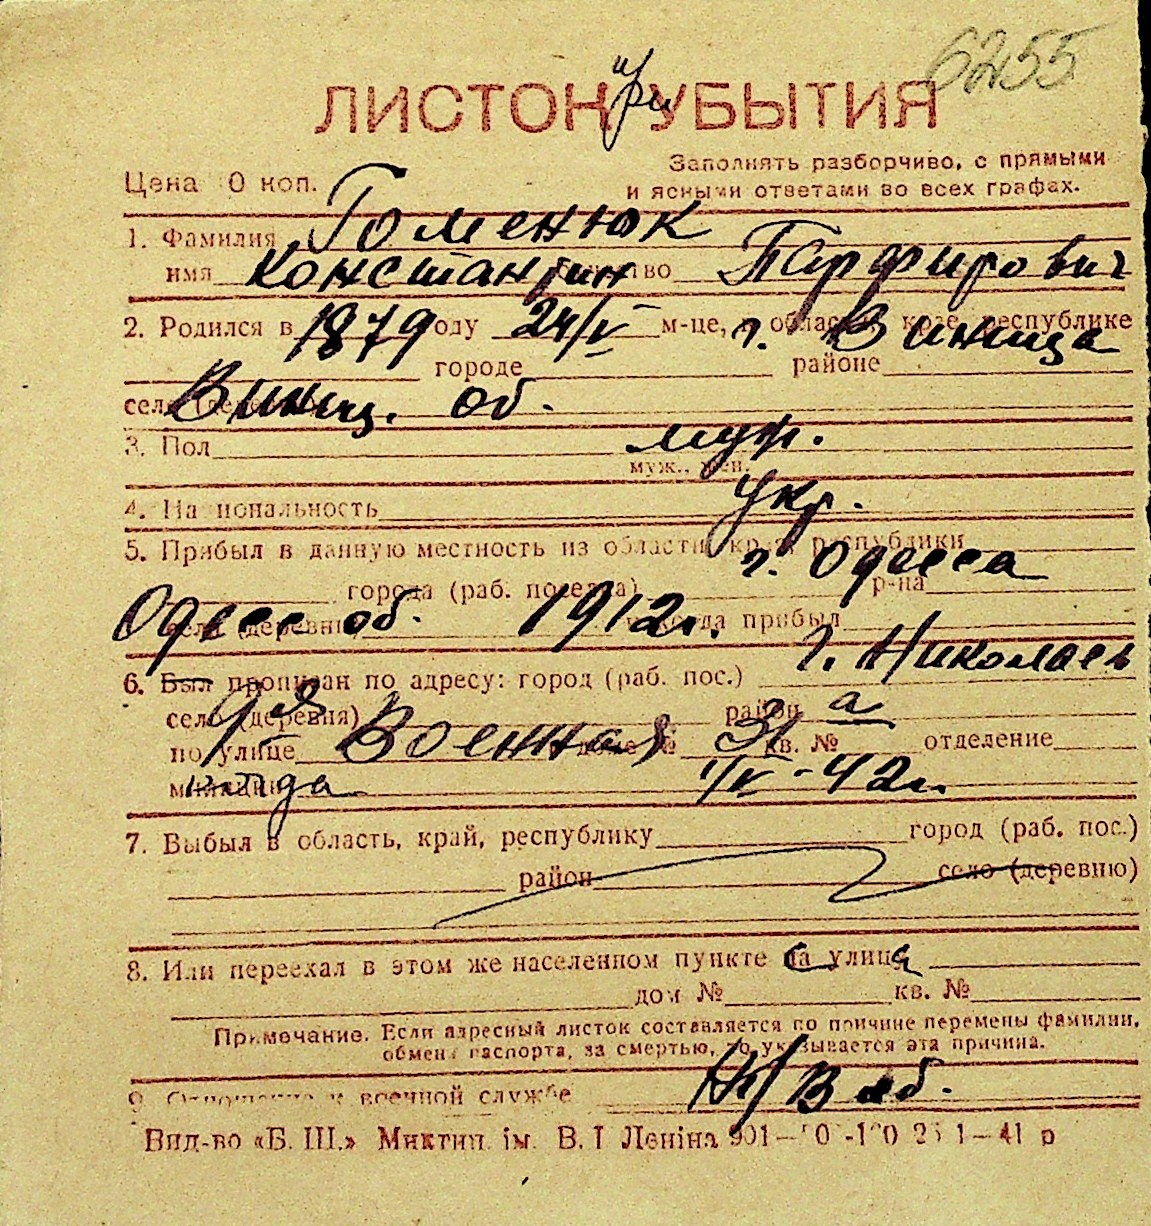 6255
ЛИСТОК при УБЫТИЯ
Заполнять разборчиво, с прямыми
Цена 0 коп.
и ясными ответами во всех графах.
1. Фамилия Гоменюк
имя Константин Парфирович
2. Родился в 1879 году 24/V м-це, г. Виница
городе районе
Виниц. об.
3. Пол муж.
муж., жен.
4. Национальность укр.
5. Прибыл в данную местность из области, края, республики
г. Одесса
города (раб. поселка) р-на
Одесс об. 1912г. когда прибыл
6. Был прописан по адресу: город (раб. пос.) г. Николаев
село (деревня) район
по улице Военная дом № 31 а кв. № отделение
1/V-42г.
7. Выбыл в область, край, республику город (раб. пос.)
район село (деревню)
8. Или переехал в этом же населенном пункте с улицы
дом № кв. №
Примечание. Если адресный листок составляется по причине перемены фамилии,
обмена паспорта, за смертью, то указывается эта причина.
9. Отношение к военной службе
Вид-во «Б. Ш.» Миктип. ім. В. І Леніна